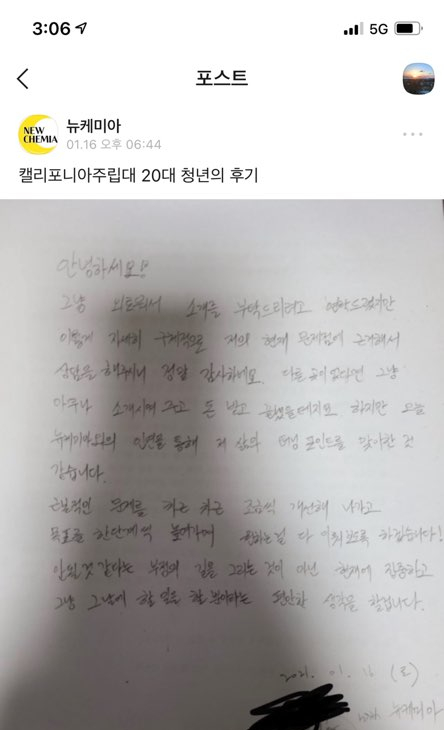 3:06
5G
포스트
NEW CHEMIA
뉴케미아
01.16 오후 06:44
캘리포니아주립대 20대 청년의 후기
안녕하세요!
그냥 소개를 부탁드리려고 연락드렸지만
이렇게 자세히 구체적으로 저의 현재 문제점에 근거해서
상담을 해주시니 정말 감사하네요. 다른 곳이었다면 그냥
아무나 소개시켜 주고 돈 받고 끝냈을테지요 하지만 오늘
뉴케미아와의 인연을 통해 제 삶의 터닝 포인트를 맞이한 것
같습니다.
근본적인 문제를 차근 차근 조금씩 개선해 나가고
목표를 한단계씩 원하는걸 다 이뤄보도록 하겠습니다!
안될 것 같다는 부정의 길을 그리는 것이 아닌 현재에 집중하고
그냥 그날에 할 일을 할 뿐이라는 편안한 생각을 할겁니다.
2021. 01. 16 (토)
뉴케미아